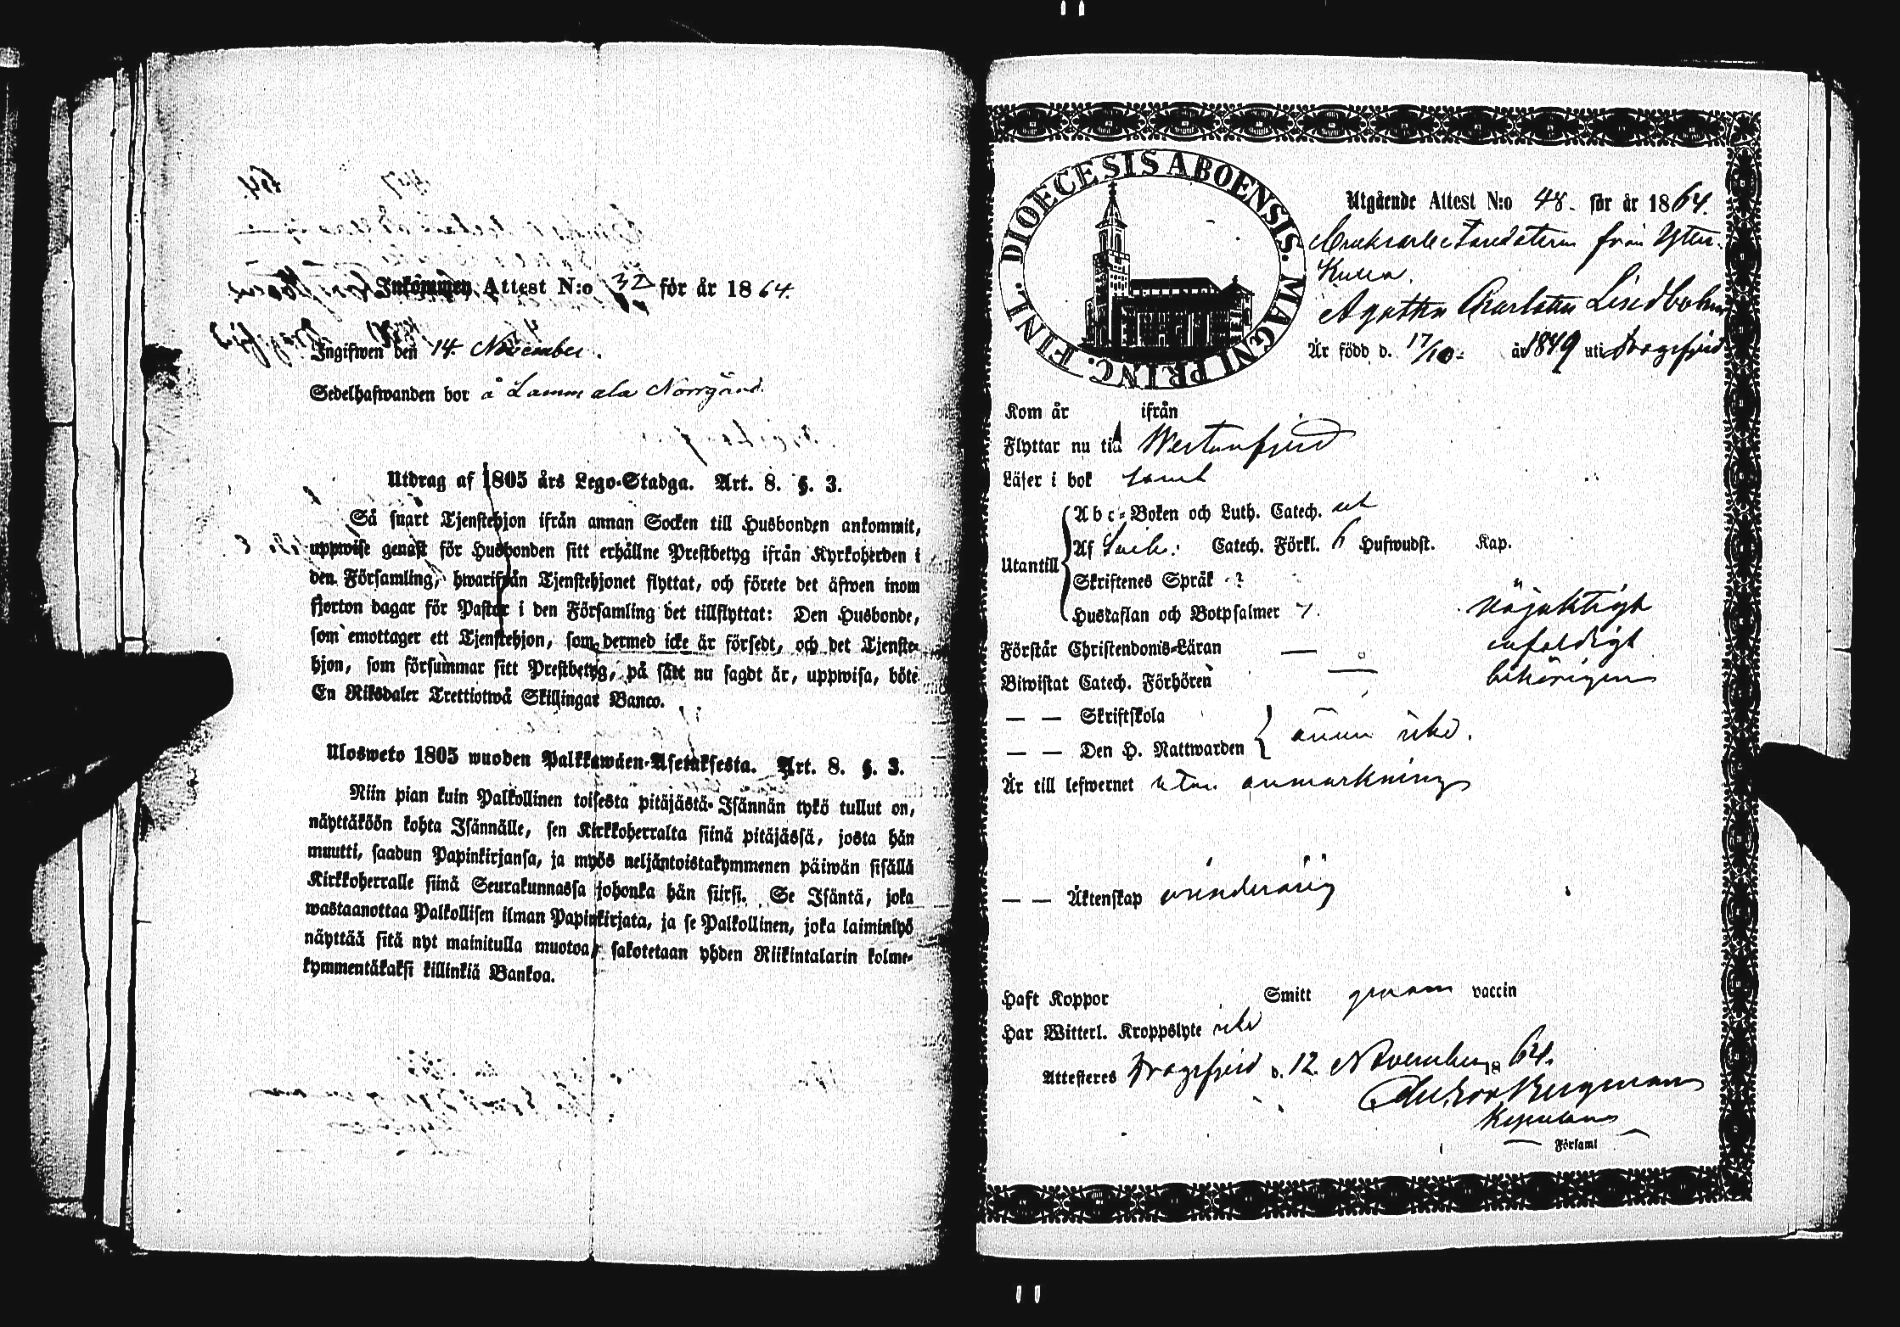 Inkommen Attest N:o 32 för år 1864.
Ingifwen den 14. November.
Sedelhafwanden bor å Lammala Norrgård.
Utdrag af 1805 års Lego-Stadga. Art. 8. §. 3.
Så snart Tjenstehjon ifrån annan Socken till Husbonden ankommit,
uppwise genast för Husbonden sitt erhållne Prestbetyg ifrån Kyrkoherden i
den Församling, hwarifrån Tjenstehjonet flyttat, och förete det äfwen inom
fjorton dagar för Pastor i den Församling det tillflyttat: Den Husbonde,
som emottager ett Tjenstehjon, som dermed icke är försedt, och det Tjenste-
hjon, som försummar sitt Prestbetyg, på sätt nu sagdt är, uppwisa, böte
En Riksdaler Trettiotwå Skillingar Banco.
Ulosweto 1805 wuoden Palkkawäen-Asetuksesta. Art. 8. §. 3.
Niin pian kuin Palkollinen toisesta pitäjästä Isännän tykö tullut on,
näyttäköön kohta Isännälle, sen Kirkkoherralta siinä pitäjässä, josta hän
muutti, saadun Papinkirjansa, ja myös neljäntoistakymmenen päiwän sisällä
Kirkkoherralle siinä Seurakunnassa johonka hän siirsi. Se Isäntä, joka
wastaanottaa Palkollisen ilman Papinkirjata, ja se Palkollinen, joka laiminlyö
näyttää sitä nyt mainitulla muotoa, sakotetaan yhden Riikintalarin kolme-
kymmentäkaksi killinkiä Bankoa.
DIOECESIS ABOENSIS. MAGNI PRINC. FINL.
Utgående Attest N:o 48. för år 1864.
från Ytter-
Kulla
Agatha Charlotta Lindbohm
Är född d. 17/10 år 1849 uti Dragsfjerd
Kom år ifrån
Flyttar nu till Westanfjerd
Läser i bok samt
Utantill
Abc-Boken och Luth. Catech. ut
Af Catech. Förkl. 6 Hufwudst. Kap.
Skriftenes Språk ?
Hustaflan och Botpsalmer 7. nöjaktigt
Förstår Christendoms-Läran — enfaldigt
Biwistat Catech. Förhören — behörigen
— — Skriftskola
— — Den H. Nattwarden } ännu icke.
Är till lefwernet utan anmärkning
— — Äktenskap minderårig
Haft Koppor Smitt genom vaccin
Har Witterl. Kroppslyte icke
Attesteres Dragsfjerd d. 12. November 1864.
Bergman
Kapellan
Församl